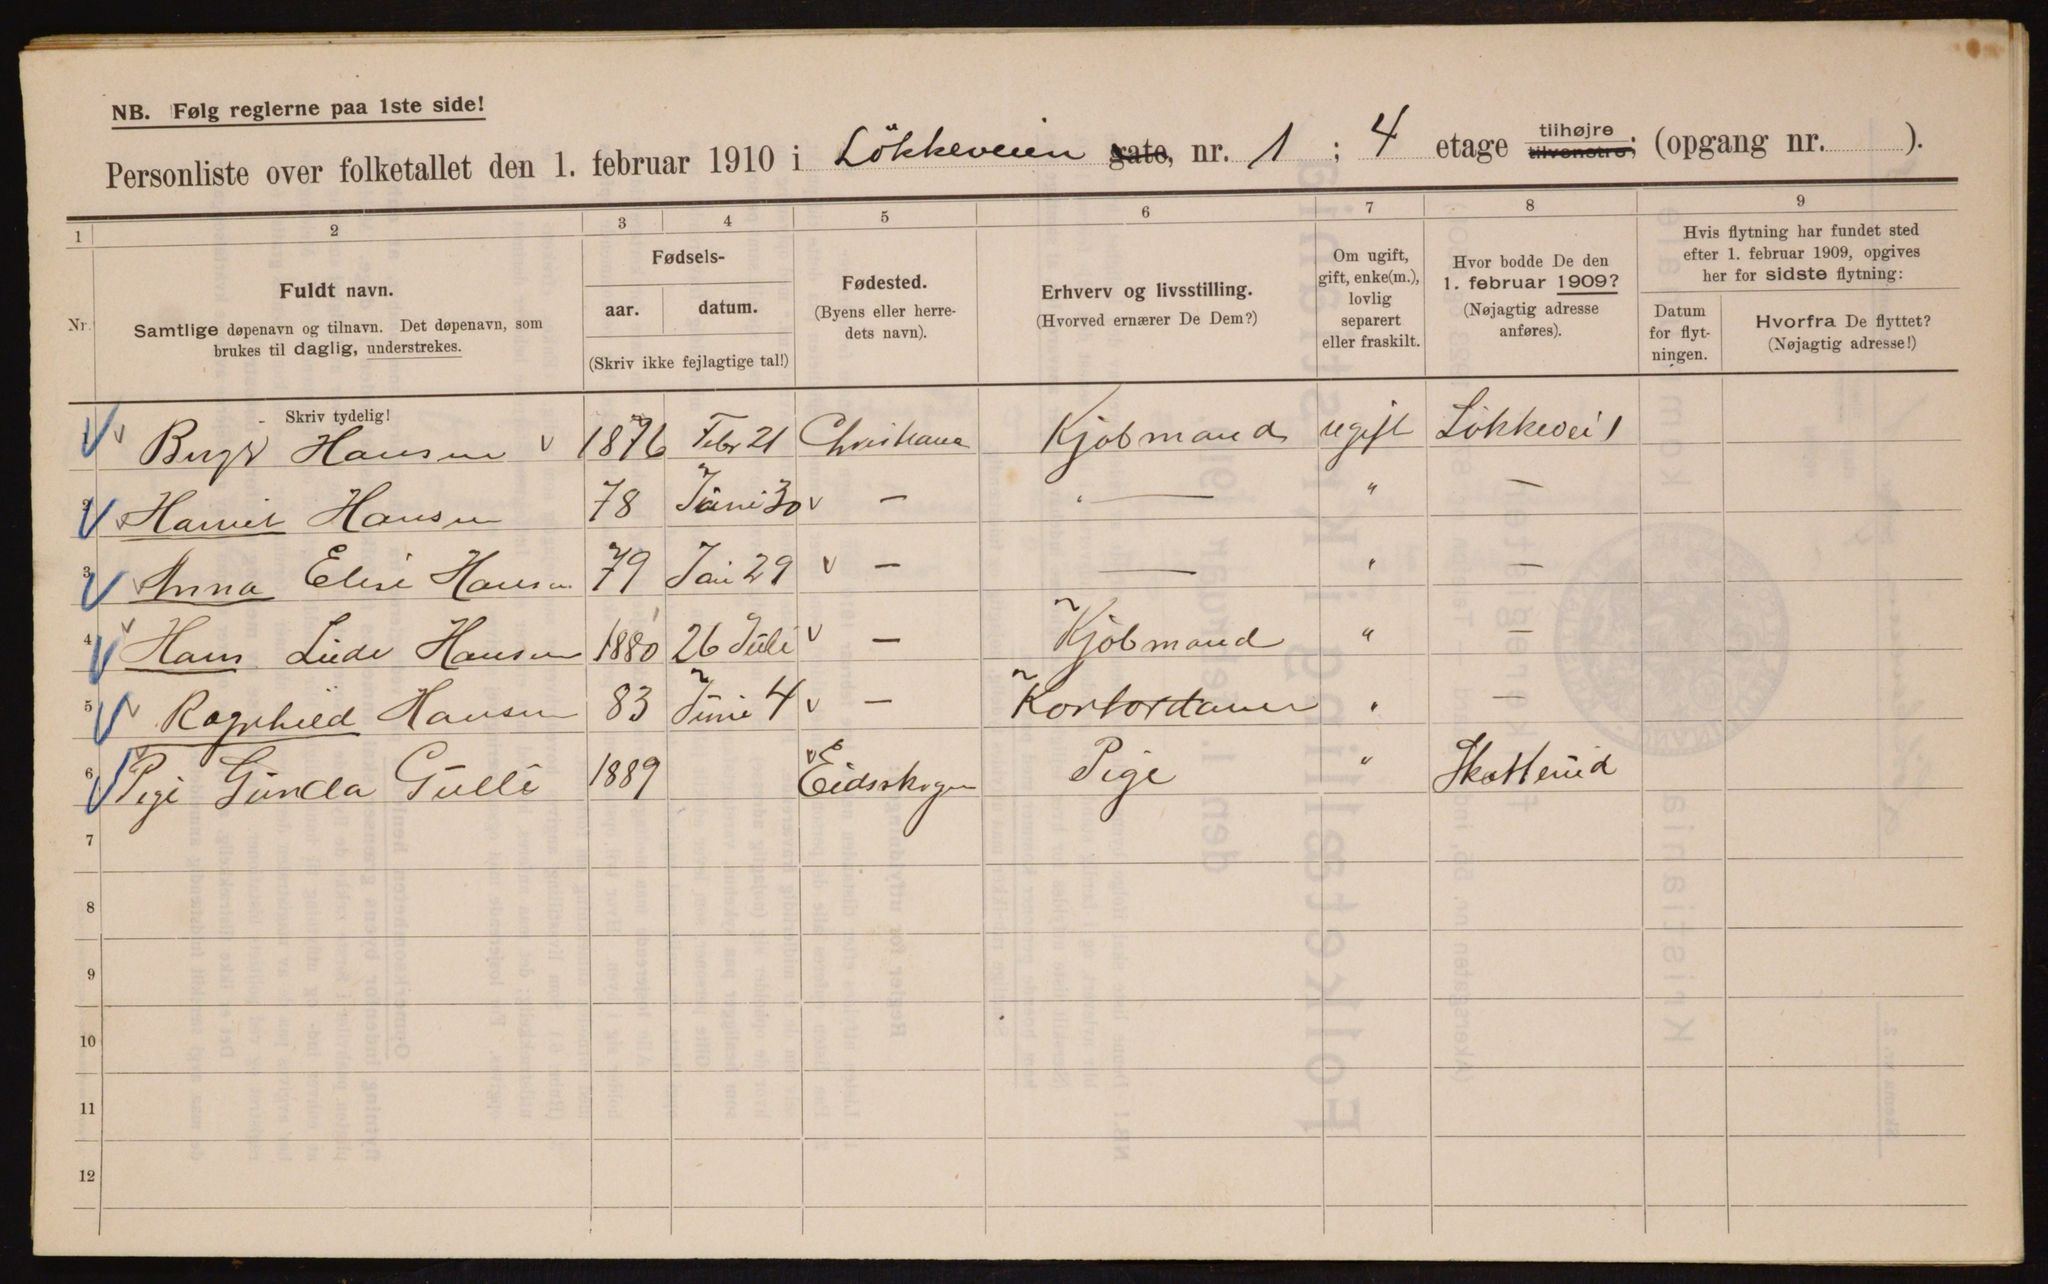 NB. Følg reglerne paa 1ste side!
Personliste over folketallet den 1. februar 1910 i Lökkeveien gate, nr. 1 ; 4 etage tilhøjre tilvenstre; (opgang nr. ).
1 2 3 4 5 6 7 8 9
Nr. Fuldt navn. Samtlige døpenavn og tilnavn. Det døpenavn, som
brukes til daglig, understrekes.
Fødsels-
aar. datum.
(Skriv ikke fejlagtige tal!)
Fødested.
(Byens eller herre-
dets navn).
Erhverv og livsstilling.
(Hvorved ernærer De Dem?)
Om ugift,
gift, enke(m.),
lovlig
separert
eller fraskilt.
Hvor bodde De den
1. februar 1909?
(Nøjagtig adresse
anføres).
Hvis flytning har fundet sted
efter 1. februar 1909, opgives
her for sidste flytning:
Datum
for flyt-
ningen.
Hvorfra De flyttet?
(Nøjagtig adresse!)
Skriv tydelig!
1 Hansen 1876 Febr 21 Christiania Kjøbmand ugift Lökkevei 1
2 Harriet Hansen 78 Juni 30 — — " —
3 Anna Elise Hansen 79 Jan 29 — — " —
4 Hans Hansen 1880 26 Juli — Kjøbmand " —
5 Ragnhild Hansen 83 Juni 4 — Kontordame " —
6 Pige Gunda Gulli 1889 Eidsskogen Pige " Skotterud
7
8
9
10
11
12